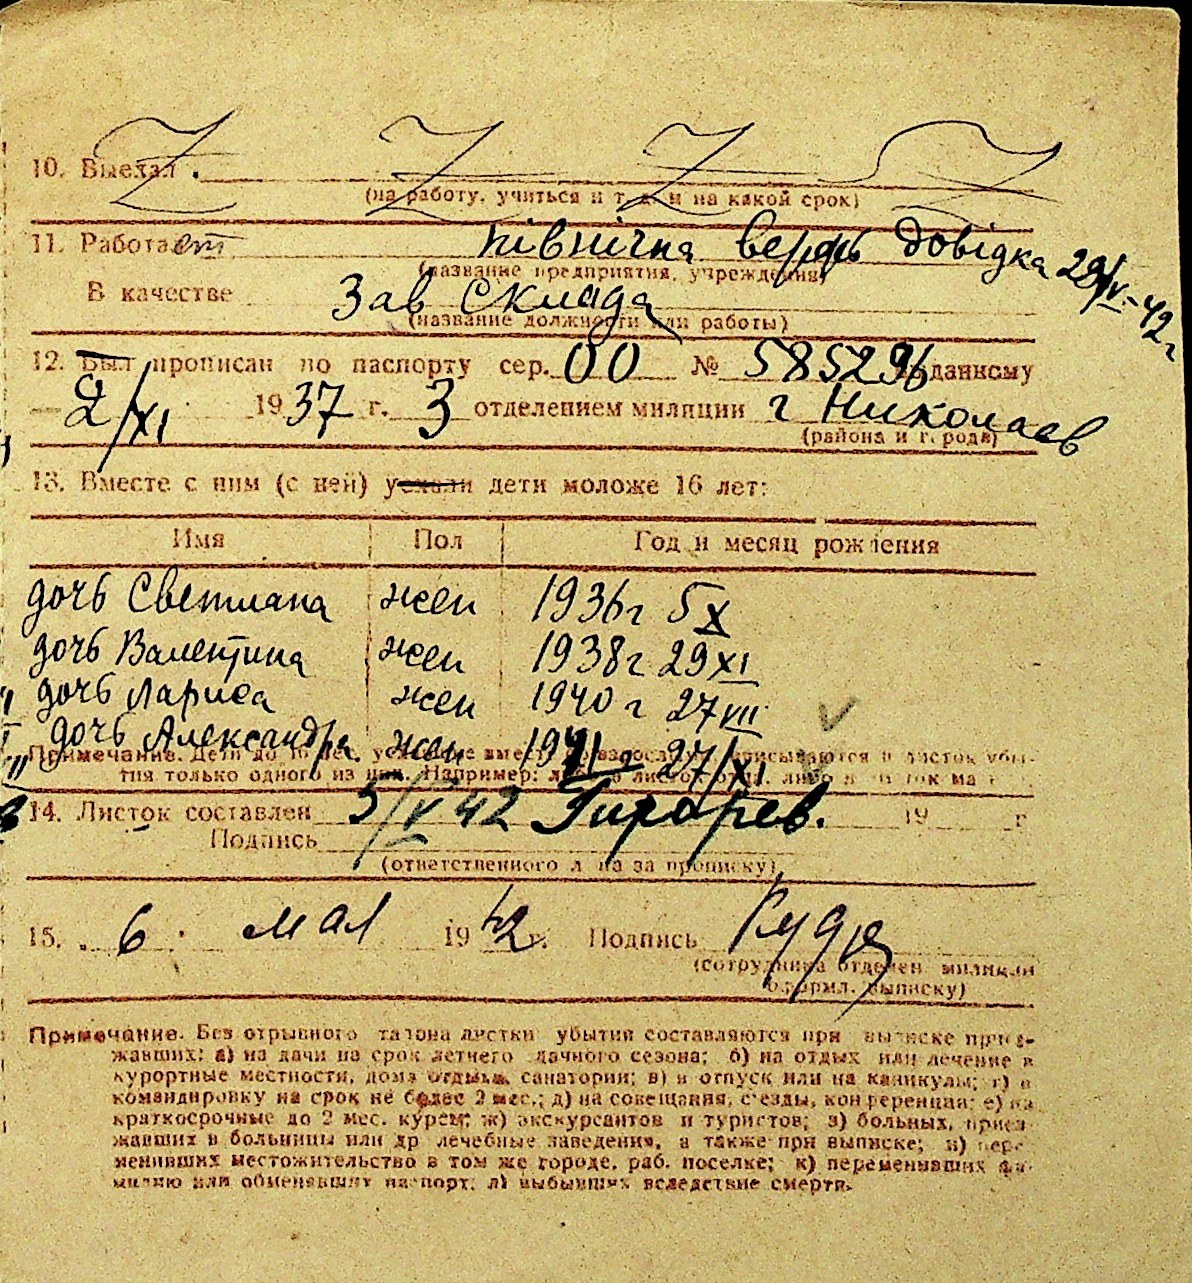 10. Выехал
(на работу, учиться и т. д. и на какой срок)
11. Работает північна верфь довідка 29/IV-42 г
(название предприятия, учреждения)
В качестве Зав Склада
(название должности или работы)
12. Был прописан по паспорту сер. 00 № 585296 выданному
2/XI 1937 г. 3 отделением милиции г Николаев
(района и города)
13. Вместе с ним (с ней) уехали дети моложе 16 лет:
Имя Пол Год и месяц рождения
дочь Светлана жен 1936г 5 X
дочь Валентина жен 1938г 29 XI
дочь Лариса жен 1940 г 27 VII
дочь Александра жен 1941 г 27/XI
Примечание. Дети до 16 лет, уехавшие вместе со взрослыми, вписываются в листок убы-
тия только одного из них. Например: либо в листок отца, либо в листок ма
14. Листок составлен 5/V 42 19 г
Подпись
(ответственного лица за прописку)
15. 6 мая 1942 г. Подпись
(сотрудника отделен. милиции
оформл. выписку)
Примечание. Без отрывного талона листки убытия составляются при выписке приез-
жавших: а) на дачи на срок летнего дачного сезона; б) на отдых или лечение в
курортные местности, дома отдыха, санатории; в) в отпуск или на каникулы; г) в
командировку на срок не более 2 мес.; д) на совещания, съезды, конференции; е) на
краткосрочные до 2 мес. курсы; ж) экскурсантов и туристов; з) больных, приез-
жавших в больницы или др лечебные заведения, а также при выписке; и) пере-
менивших местожительство в том же городе, раб. поселке; к) переменивших фа-
милию или обменявших паспорт; л) выбывших вследствие смерти.